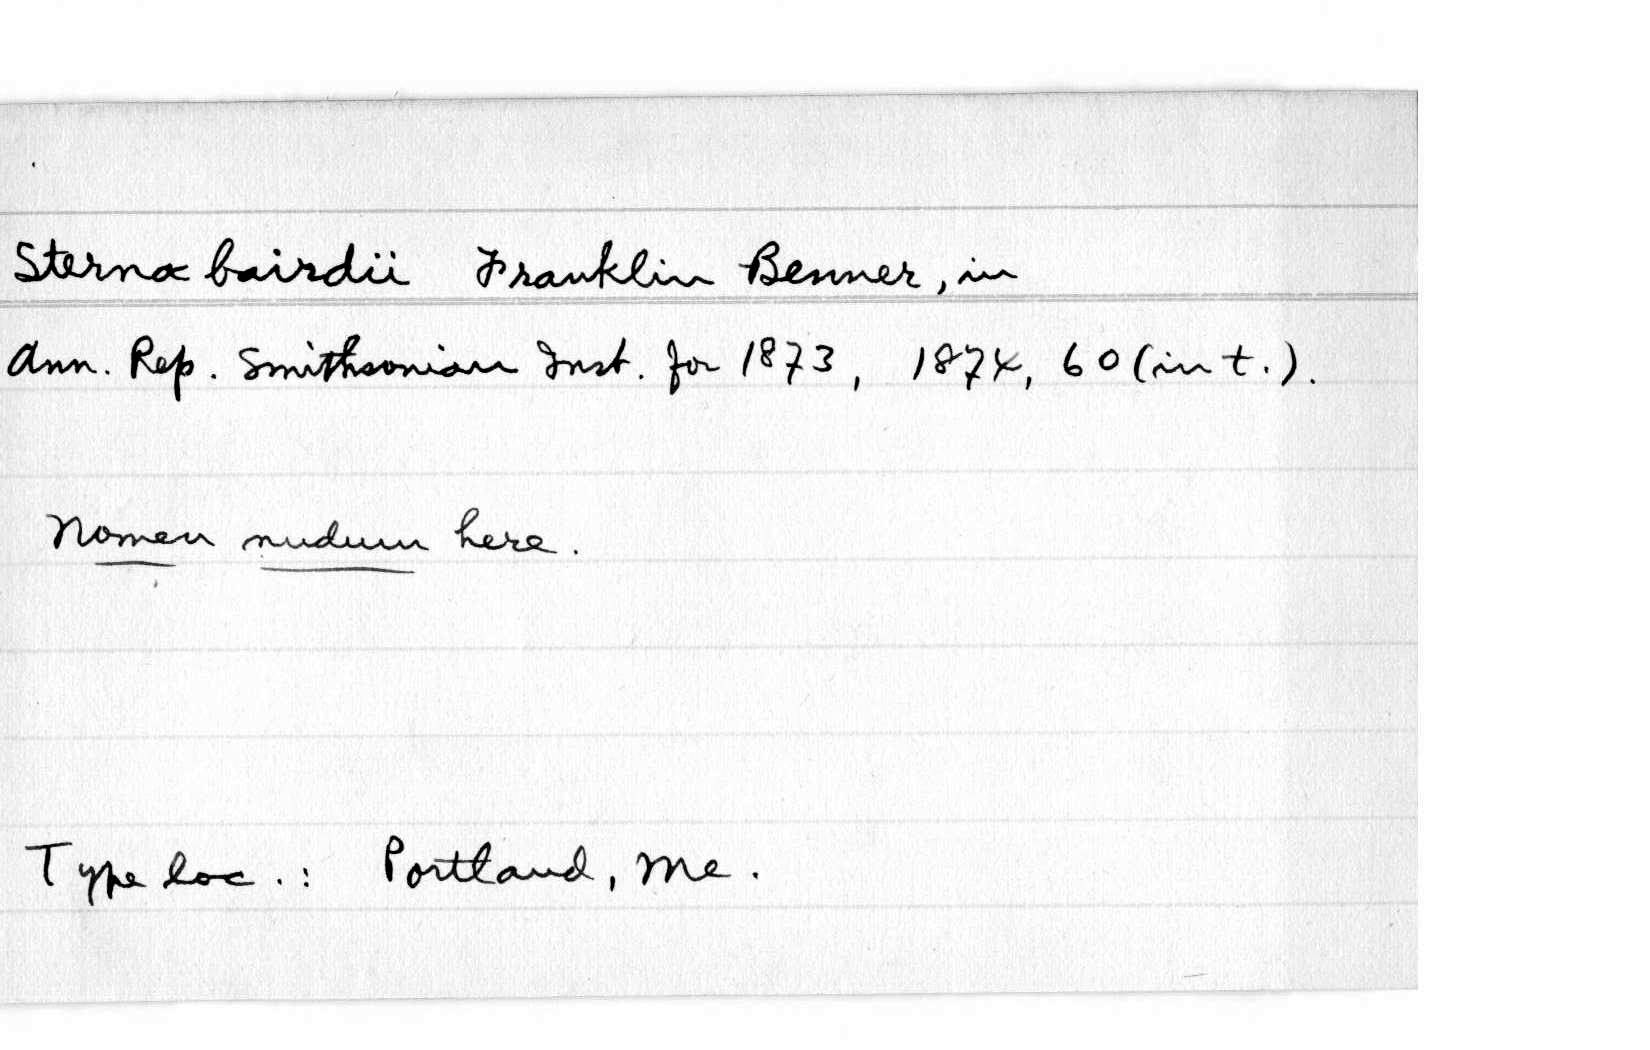 Sterna bairdii Franklin Benner, in
Ann. Rep. Smithsonian Inst. for 1873, 1874, 60 (in t.).
Nomen nudum here.
Type loc.: Portland, Me.